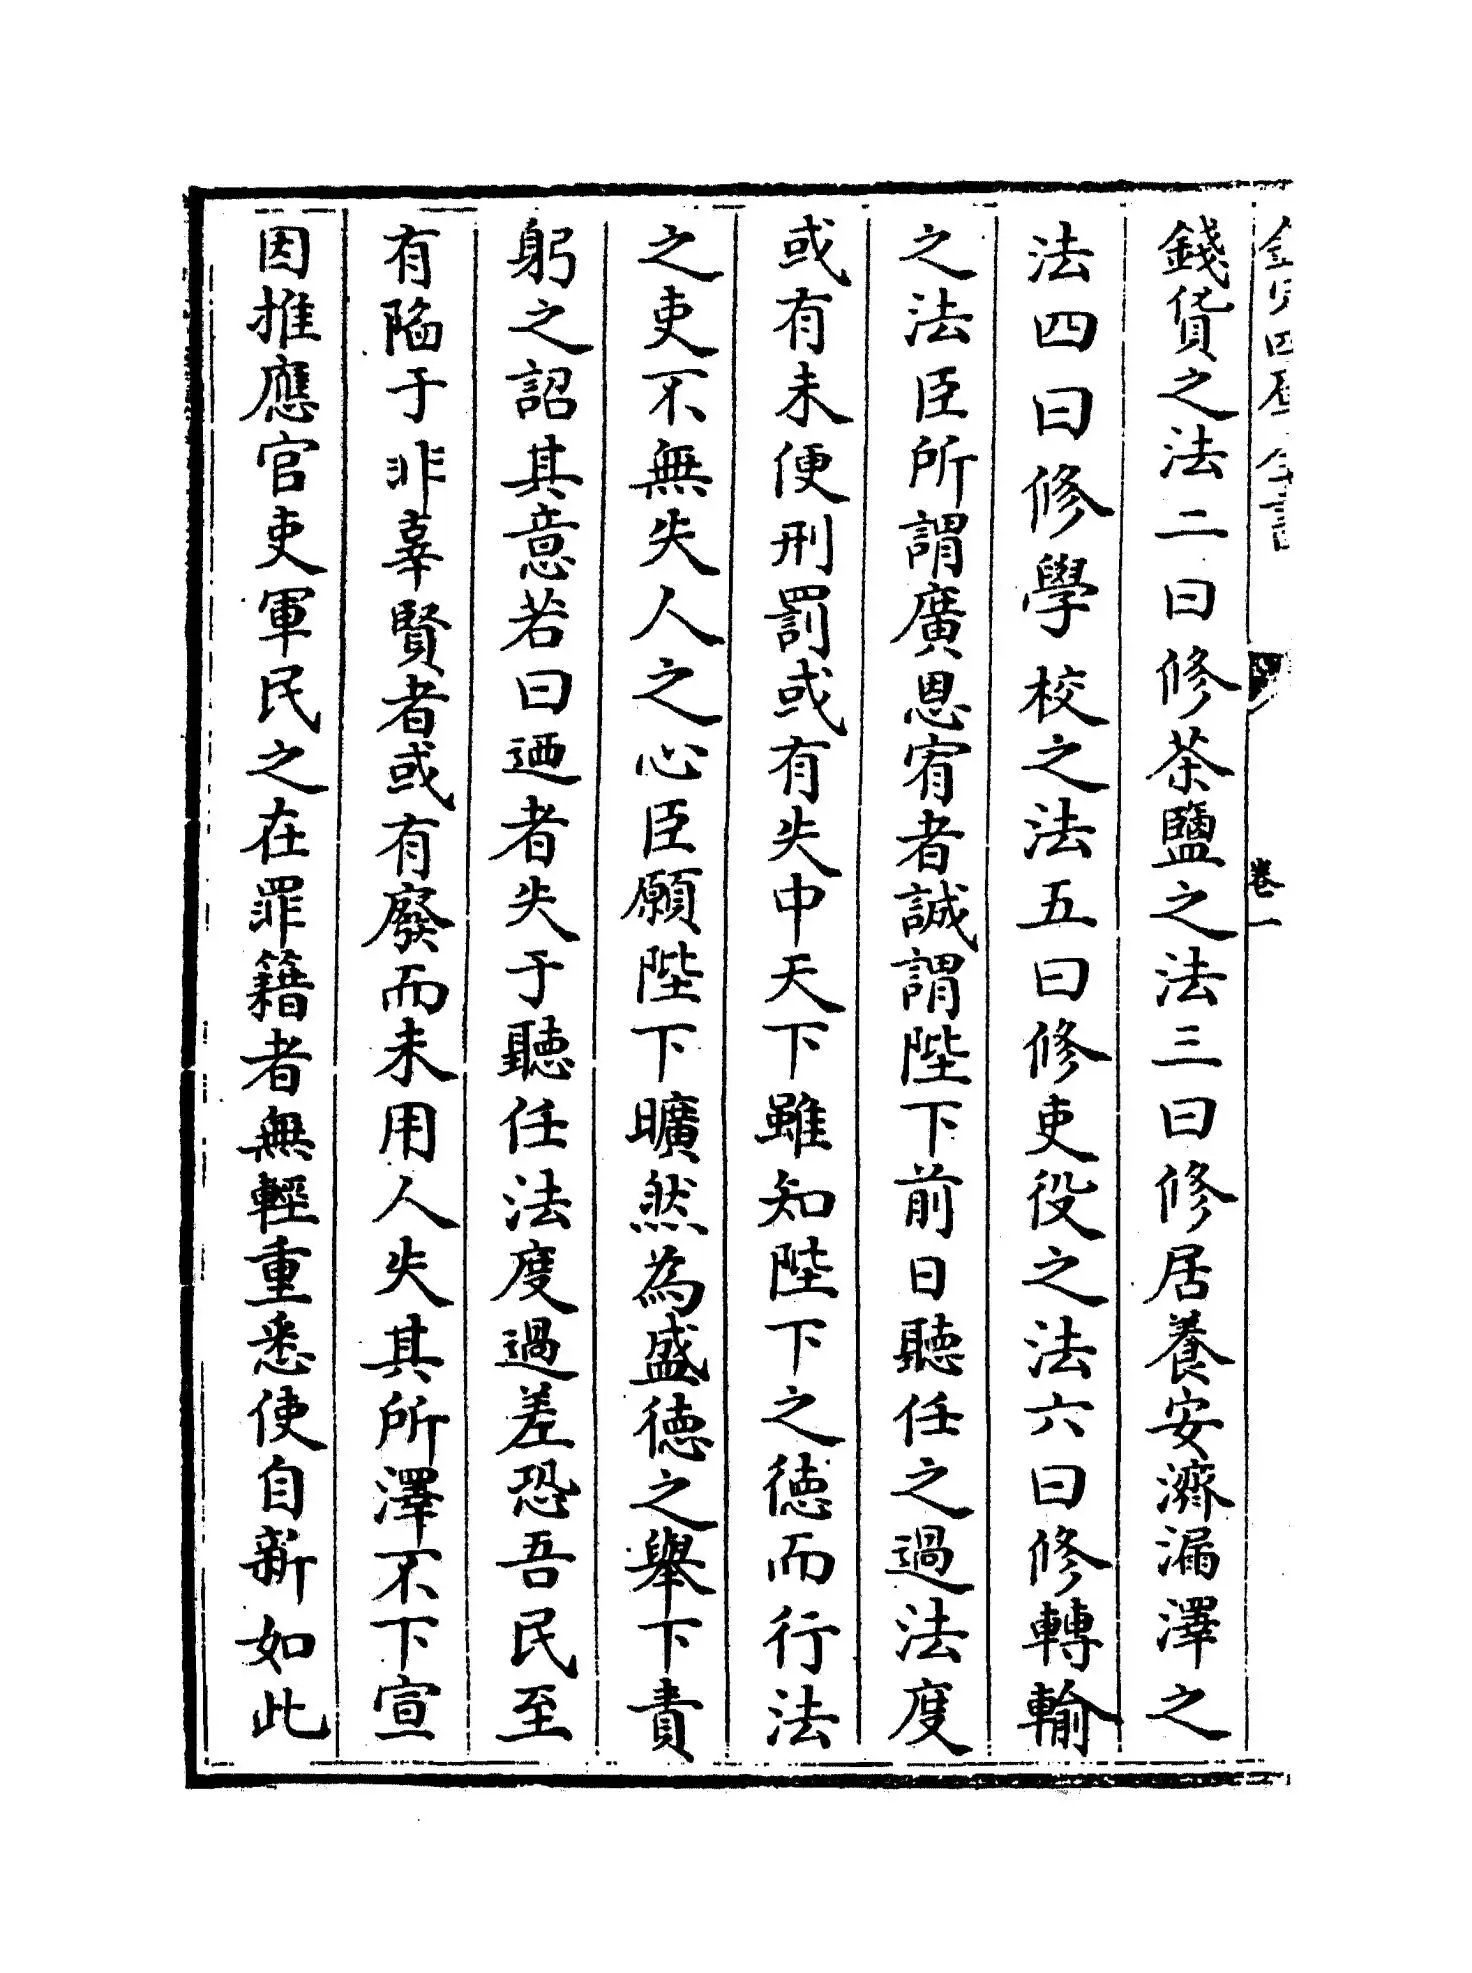 錢貨之法二曰修茶鹽之法三曰修居養安濟漏澤之
法四曰修學校之法五曰修吏役之法六曰修轉輸
之法臣所謂廣恩宥者誠謂陛下前日聽任之過法度
或有未便刑罰或有失中天下雖知陛下之徳而行法
之吏不無失人之心臣願陛下曠然為盛徳之舉下責
躬之詔其意若曰迺者失于聽任法度過差恐吾民至
有陷于非辜賢者或有廢而未用人失其所澤不下宣
因推應官吏軍民之在罪籍者無輕重悉使自新如此
卷一